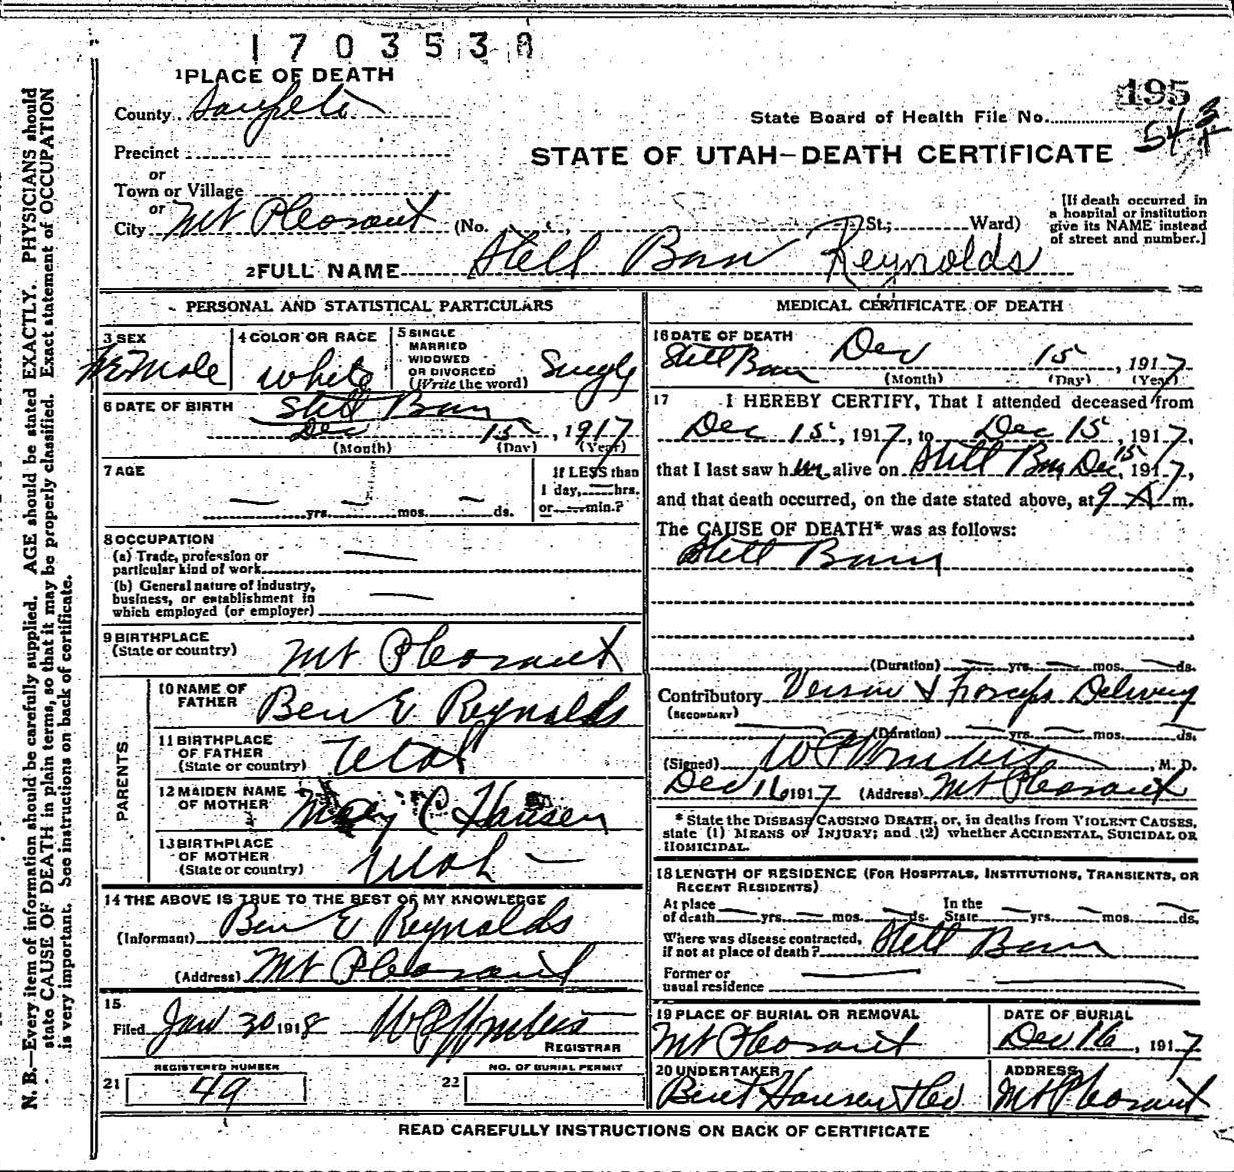 1703538
1 PLACE OF DEATH
County Sanpete
195
State Board of Health File No.
543
Precinct
STATE OF UTAH—DEATH CERTIFICATE
or
Town or Village
or
City Mt Pleasant (No. , St.; Ward)
[If death occurred in
a hospital or institution
give its NAME instead
of street and number.]
2 FULL NAME Still Born Reynolds
PERSONAL AND STATISTICAL PARTICULARS
3 SEX
Female
4 COLOR OR RACE
White
5 SINGLE
MARRIED
WIDOWED
OR DIVORCED
(Write the word)
Single
6 DATE OF BIRTH Still Born
Dec 15, 1917
(Month) (Day) (Year)
7 AGE
— yrs. — mos. — ds.
If LESS than
1 day, — hrs.
or — min.?
8 OCCUPATION
(a) Trade, profession or
particular kind of work —
(b) General nature of industry,
business, or establishment in
which employed (or employer) —
9 BIRTHPLACE
(State or country) Mt Pleasant
PARENTS
10 NAME OF
FATHER Ben E Reynolds
11 BIRTHPLACE
OF FATHER
(State or country) Utah
12 MAIDEN NAME
OF MOTHER Mary C Hansen
13 BIRTHPLACE
OF MOTHER
(State or country) Utah —
14 THE ABOVE IS TRUE TO THE BEST OF MY KNOWLEDGE
(Informant) Ben E Reynolds
(Address) Mt Pleasant
15
Filed Jan 30 1918
REGISTRAR
REGISTERED NUMBER
21 49
NO. OF BURIAL PERMIT
22
MEDICAL CERTIFICATE OF DEATH
16 DATE OF DEATH
Still Born Dec 15, 1917
(Month) (Day) (Year)
17 I HEREBY CERTIFY, That I attended deceased from
Dec 15, 1917, to Dec 15, 1917,
that I last saw h alive on Still Born Dec 15, 1917,
and that death occurred, on the date stated above, at 9 A m.
The CAUSE OF DEATH* was as follows:
Still Born
(Duration) — yrs. — mos. — ds.
Contributory Version & Forceps Delivery
(SECONDARY)
(Duration) — yrs. — mos. — ds.
(Signed) , M. D.
Dec 16 1917 (Address) Mt Pleasant
* State the DISEASE CAUSING DEATH, or, in deaths from VIOLENT CAUSES,
state (1) MEANS OF INJURY; and (2) whether ACCIDENTAL, SUICIDAL OR
HOMICIDAL.
18 LENGTH OF RESIDENCE (FOR HOSPITALS, INSTITUTIONS, TRANSIENTS, OR
RECENT RESIDENTS)
At place
of death — yrs. — mos. — ds.
In the
State — yrs. — mos. — ds.
Where was disease contracted,
if not at place of death? Still Born
Former or
usual residence —
19 PLACE OF BURIAL OR REMOVAL
Mt Pleasant
DATE OF BURIAL
Dec 16, 1917
20 UNDERTAKER
Bent Hansen & Co
ADDRESS
Mt Pleasant
READ CAREFULLY INSTRUCTIONS ON BACK OF CERTIFICATE
N. B.—Every item of information should be carefully supplied. AGE should be stated EXACTLY. PHYSICIANS should
state CAUSE OF DEATH in plain terms, so that it may be properly classified. Exact statement of OCCUPATION
is very important. See instructions on back of certificate.